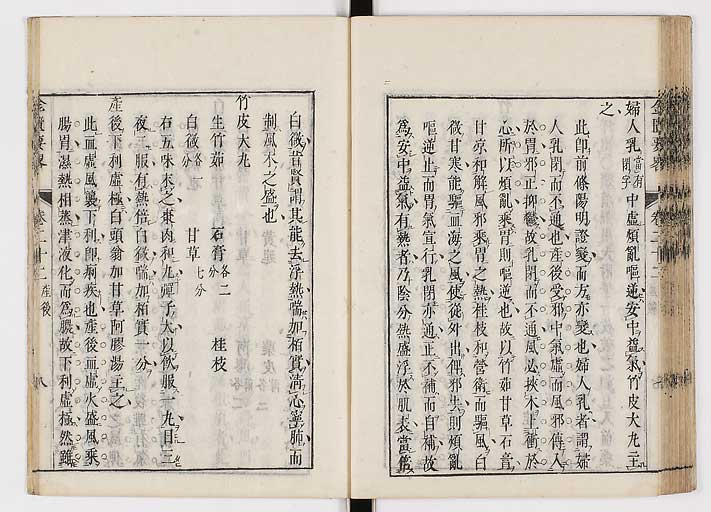 婦人乳 當有閉字 中虛煩亂嘔逆安中益氣竹皮大丸主
之
此即前條陽明證變而方亦變也婦人乳者謂婦
人乳閉而不通也產後受邪中氣虛而風邪傳入
於胃邪正抑鬱故乳閉而不通風必挾木上衝於
心所以煩亂乘胃則嘔逆也故以竹茹甘草石膏
甘涼和解風邪乘胃之熱桂枝利營衛而驅風白
薇甘寒能驅血海之風使從外出俾邪失則煩亂
嘔逆止而胃氣宣行乳閉亦通正不補而自補故
為安中益氣有熱者乃陰分熱盛浮於肌表當倍
金匱要畧 卷二十二
白薇昔賢謂其能去浮熱喘加栢實清心寧肺而
制風木之盛也
竹皮大丸
生竹茹 石膏 各二分 桂枝
白薇 各一分 甘草 七分
右五味末之棗肉和丸彈子大以飲服一丸日三
夜二服有熱倍白薇喘加栢實一分
產後下利虛極白頭翁加甘草阿膠湯主之
此血虛風襲下利即痢疾也產後血虛火盛風乘
腸胃濕熱相蒸津液化而為膿故下利虛極然雖
金匱要畧 卷二十二 產後 八